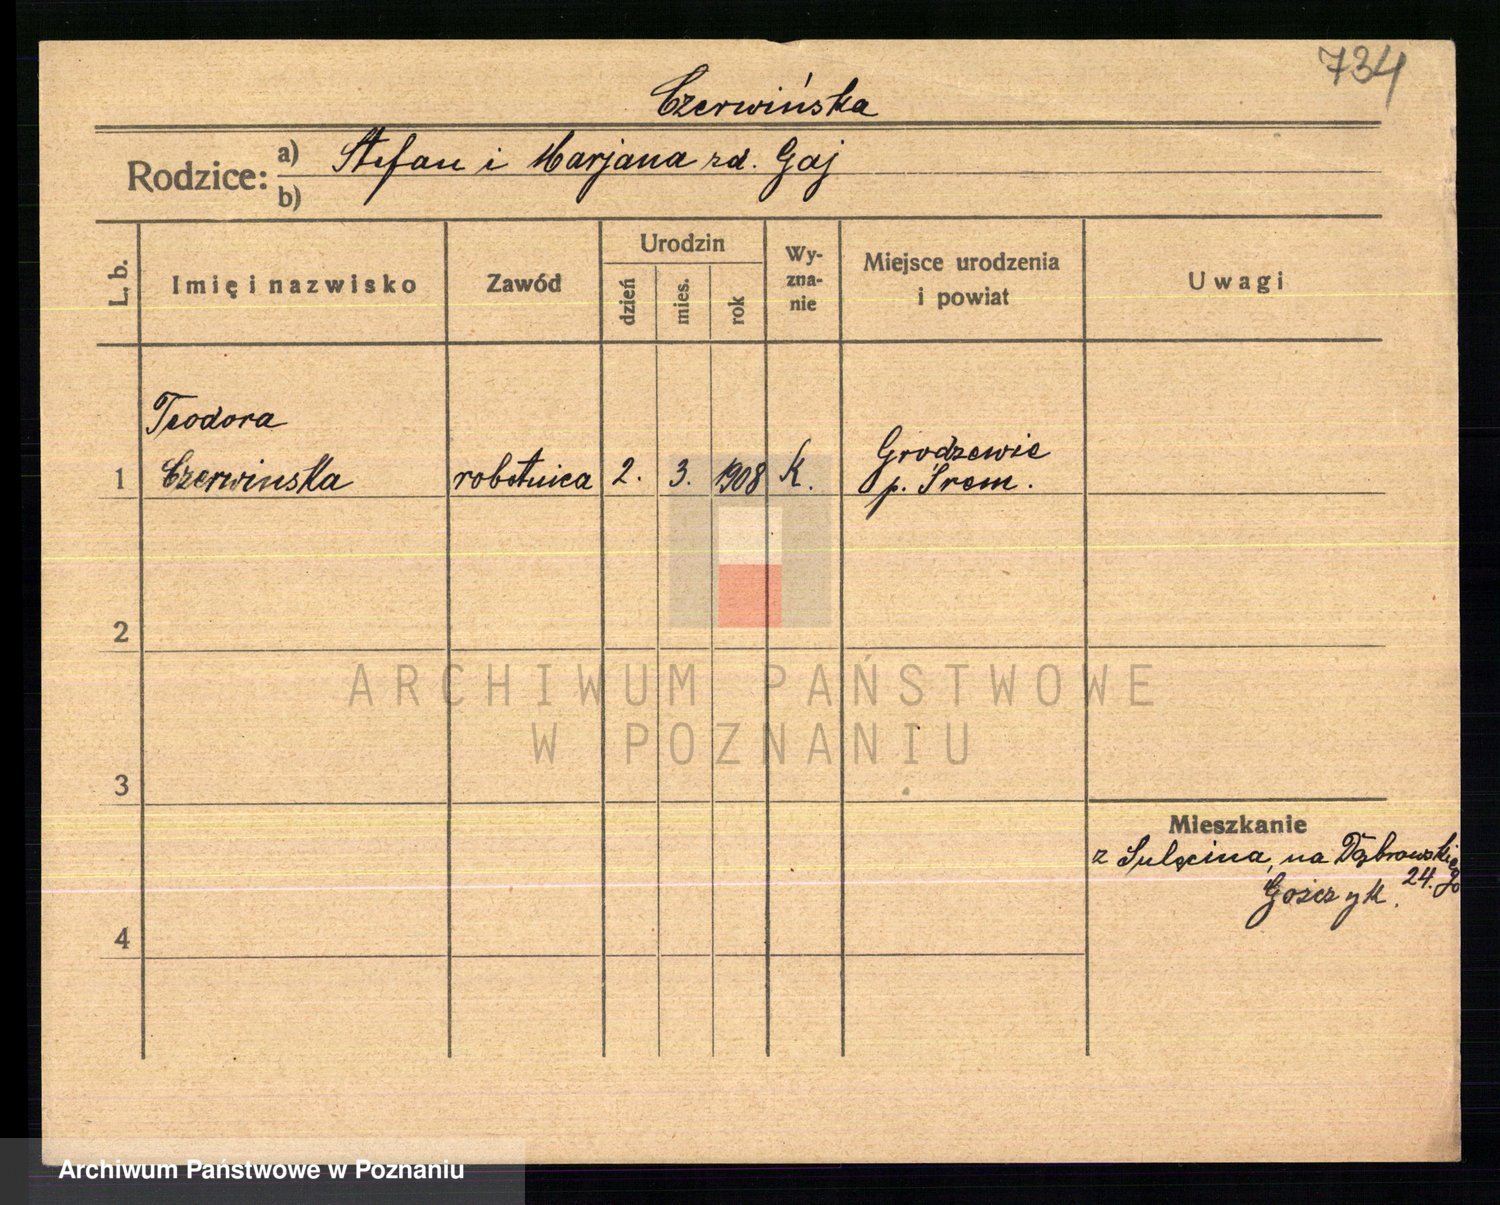 734
Czerwińska
Rodzice: a) Stefan i Marjana zd. Gaj
b)
L. b.
Imię i nazwisko
Zawód
Urodzin
dzień
mies.
rok
Wy-
zna-
nie
Miejsce urodzenia
i powiat
Uwagi
Teodora
1 Czerwinska robotnica 2. 3. 1908 K. Grodzewie
p. Śrem.
2
3
4
Mieszkanie
z Sulęcina, na Dąbrowskie
24. go
ARCHIWUM PAŃSTWOWE
W POZNANIU
Archiwum Państwowe w Poznaniu